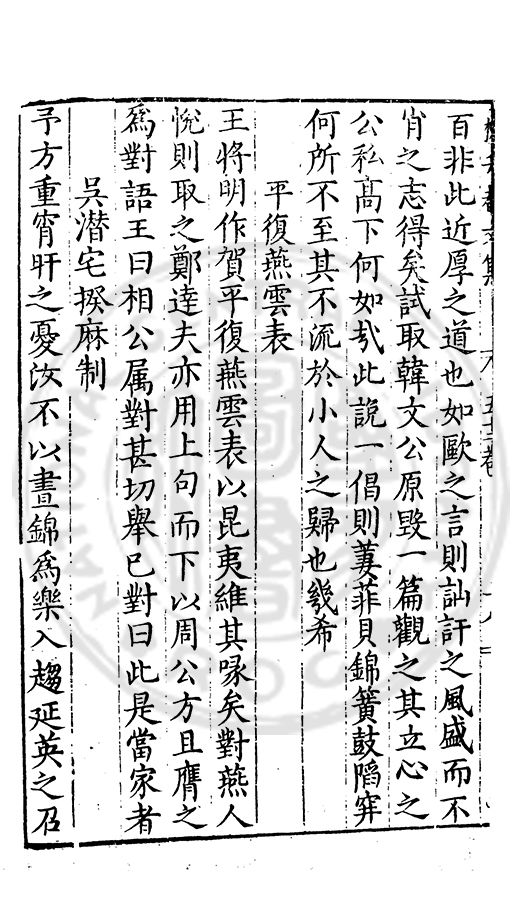 百非此近厚之道也如歐之言則訕訐之風盛而不
肖之志得矣試取韓文公原毀一篇觀之其立心之
公私髙下何如㢤此說一倡則萋菲貝錦簧鼓䧟穽
何所不至其不流於小人之歸也幾希
平復燕雲表
王將明作賀平復燕雲表以昆夷維其喙矣對燕人
悅則取之鄭達夫亦用上句而下以周公方且膺之
爲對語王曰相公属對甚切舉已對曰此是當家者
吳潛宅揆麻制
予方重宵旰之憂汝不以晝錦爲樂入趨延英之召